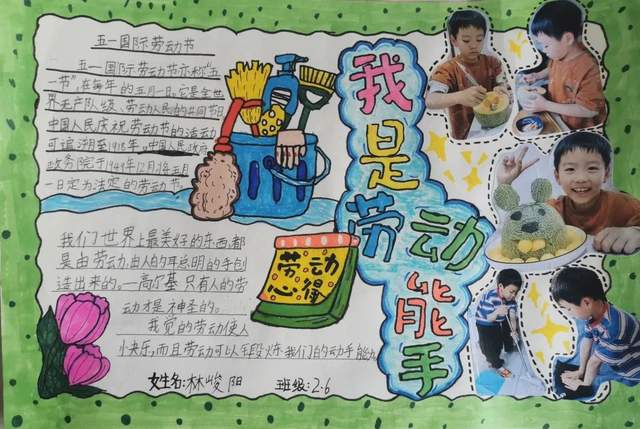 五一国际劳动节
五一国际劳动节亦称"五
一节",在每年的五月一日,它是全世
界无产阶级、劳动人民的共同节日
中国人民庆祝劳动节的活动
可追溯至1918年。中国人民政府
政务院于1949年12月将五月
一日定为法定的劳动节。
我是劳动能手
劳动
心得
我们世界上最美好的东西,都
是由劳动、由人的聪明的手创
造出来的。—高尔基 只有人的劳
动才是神圣的。
我觉的劳动使人
快乐,而且劳动可以锻炼我们的动手能力
姓名:林峻阳 班级:2.6